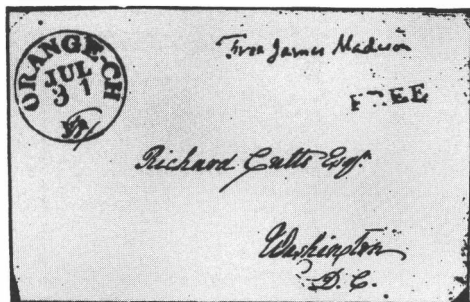 ORANGE-CH
JUL
31
Va
Free James Madison
FREE
Richard Cutts Esqr.
Washington
D. C.